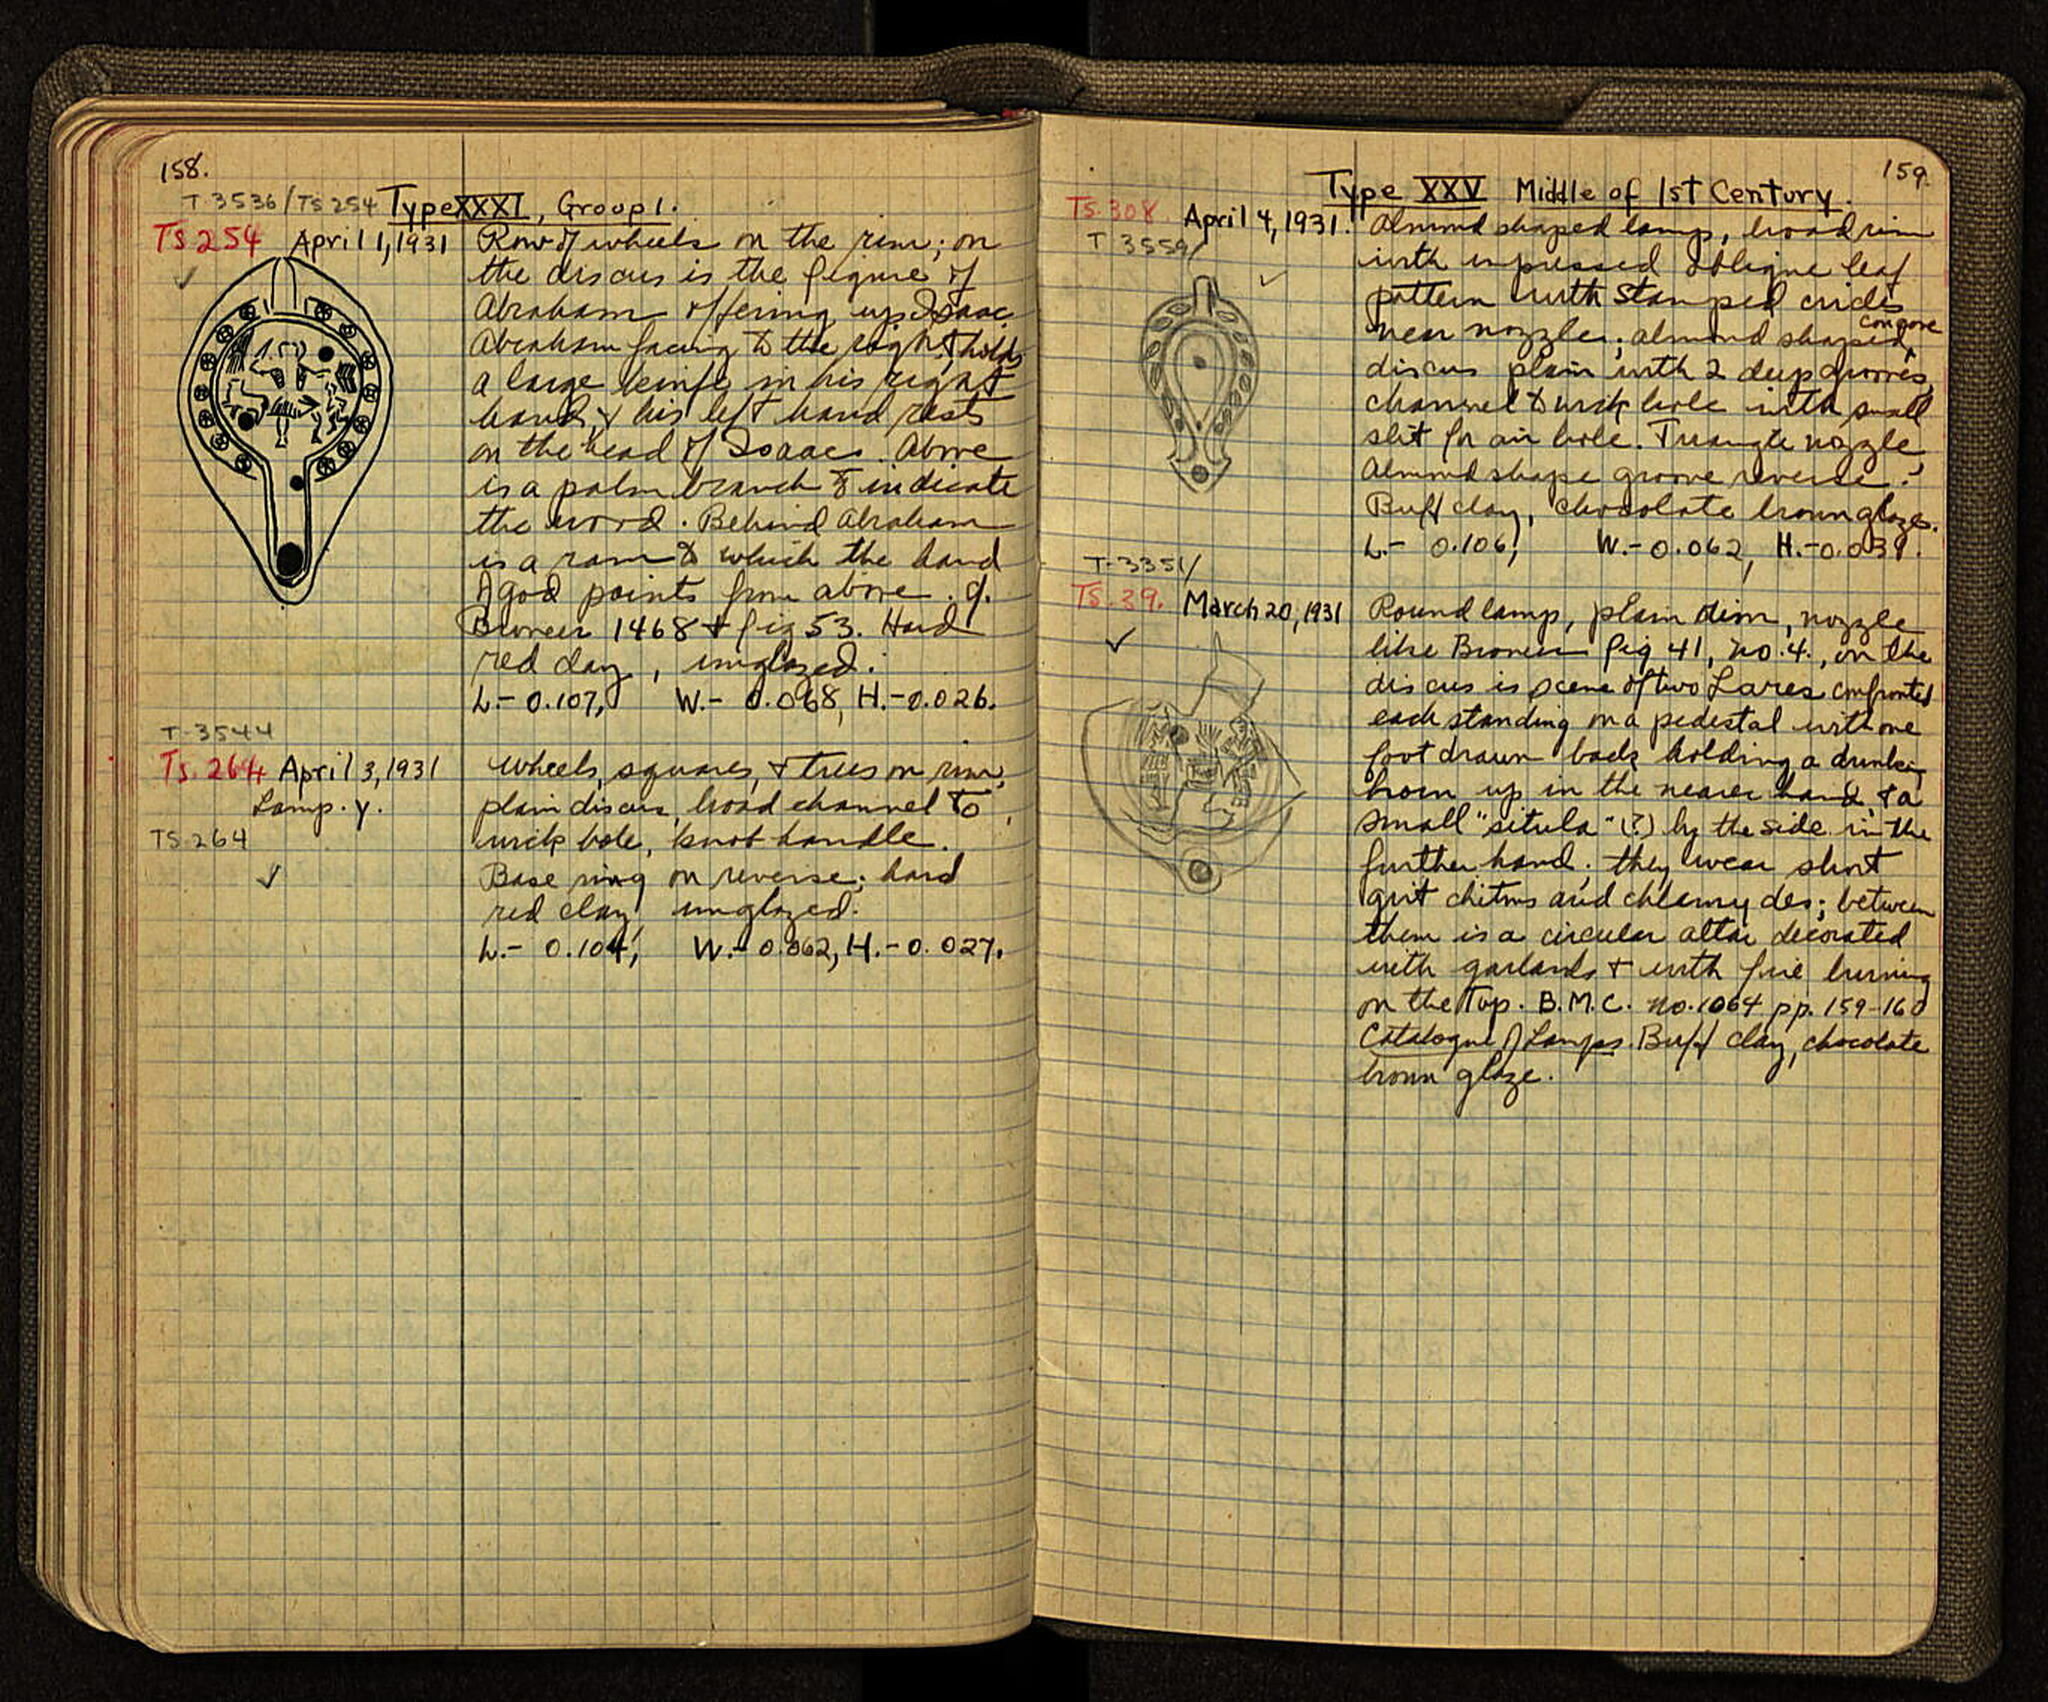 158.
T-3536/TS254 Type XXXI, Group 1.
TS 254 April 1, 1931 Row of wheels on the rim; on
the discus is the figure of
Abraham offering up Isaac
Abraham facing to the right, holds
a large knife in his right
hand, & his left hand rests
on the head of Isaac. Above
is a palm branch to indicate
the wood. Behind Abraham
is a ram to which the hand
of God points from above. cf.
Broneer 1468 & fig 53. Hard
red clay, unglazed.
L.- 0.107, W.- 0.068, H.-0.026.
T-3544
TS. 264 April 3, 1931 Wheels, squares, & trees on rim,
Lamp. y. plain discus, broad channel to
TS 264 wick hole, knob handle.
Base ring on reverse; hard
red clay, unglazed.
L.- 0.104, W.-0.062, H.-0.027.
159.
Type XXV Middle of 1st Century.
TS. 308 April 4, 1931. Almond shaped lamp, broad rim
T 3559/ with impressed oblique leaf
pattern with stamped circles
near nozzle; almond shaped, concave
discus plain with 2 deep grooves,
channel to wick hole with small
slit for air hole. Triangle nozzle,
Almond shape groove reverse.
Buff clay, chocolate brown glaze.
L.- 0.106, W.-0.062, H.-0.039.
T-3351/
TS. 39. March 20, 1931 Round lamp, plain rim, nozzle
like Broneer fig 41, no. 4., on the
discus is scene of two Lares confronted
each standing on a pedestal with one
foot drawn back holding a drinking
horn up in the nearer hand, & a
small "situla" (?) by the side in the
further hand; they wear short
girt chitons and chlamydes; between
them is a circular altar decorated
with garlands & with fire burning
on the top. B.M.C. no.1064 pp. 159-160
Catalogue of Lamps. Buff clay, chocolate
brown glaze.